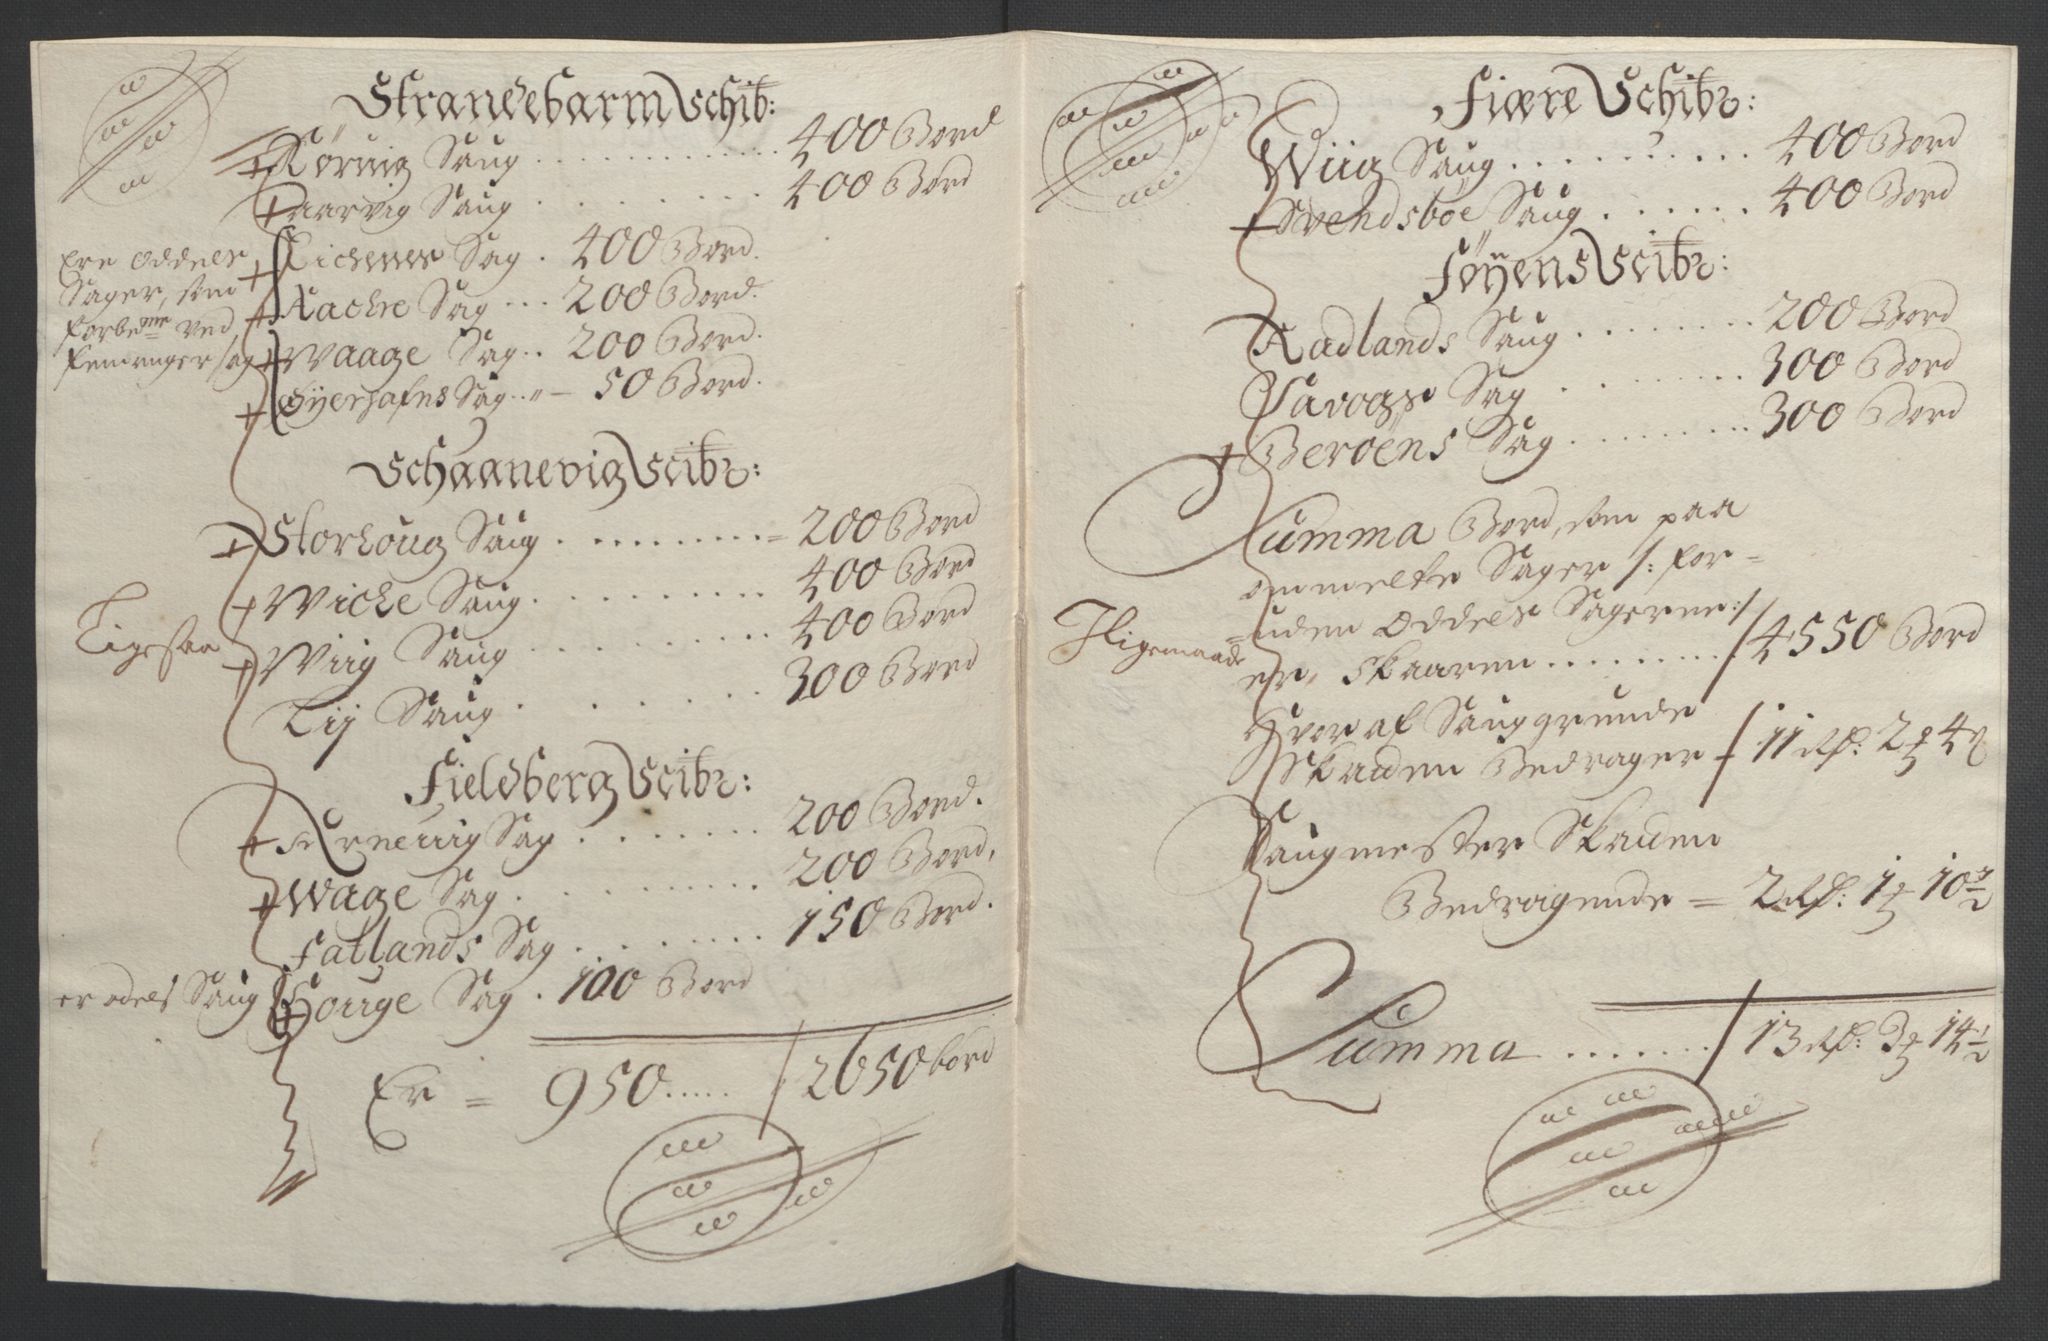 Strandebarm Schib:
Kørvig Saug . . . . . . . . . . . . 400 Bord
Aarvig Saug . . . . . . . 400 Bord
Ere Oddels
Sager, som
forbe^me ved
femanger sag
Eichenes Sag . 400 Bord.
Aachre Sag . . . 200 Bord.
Waage Sag . . 200 Bord.
Øyerhafns Sag . . " – 50 Bord.
Schaanevig Scibr:
Storhoug Saug . . . . . . . . . = 200 Bord
Wiche Saug . . . . . . . . . 400 Bord
Ligesaa
Wiig Saug . . . . . . . . 400 Bord
Lij Saug . . . . . 300 Bord
Fieldberg Scibr:
Arnevig Sag . . . . . . . 200 Bord.
Wage Sag . . . . . . . . . 200 Bord.
Fatlands Sag . . . . . . . 150 Bord.
er odels Saug
Houge Sag . 100 Bord
Er = 950 . . . . . / 2650 bord
Fiære Schibr:
Wiig Saug . . . . . . . . . . 400 Bord
Svendsboe Saug . . . . . . 400 Bord
Føyens Scibr:
Aadlands Saug . . . . . . . . 200 Bord
Savogs Sag . . . . . . . 300 Bord
Beroens Sag . . . . . . . . 300 Bord
Summa Bord, som paa
ommelte Sager /: for-
=uden Oddels Sagerne:/
Iligemaade
er, Skaaren . . . . . . . . / 4550 Bord
Hvor af Sauggrunde
Skauden Bedrager / 11 Rd: 2 ꝑ 4 ß
Saugmester Skauden
Bedragende = 2 Rd: 1 ꝑ 10 1/2
Summa . . . . . . . / 13 Rd: 3 ꝑ 14 1/2